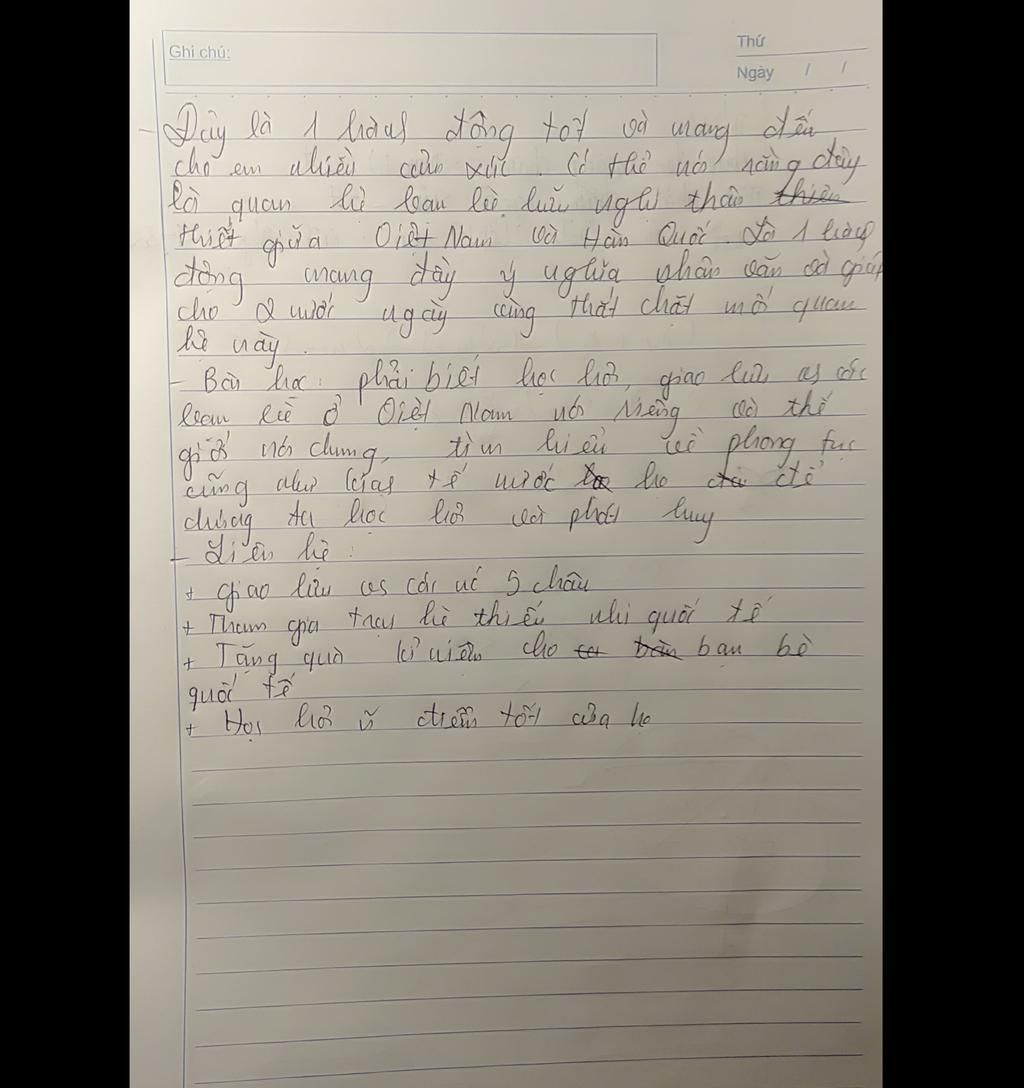 Ghi chú:
Thứ
Ngày / /
- Đây là 1 hoạt động tốt và mang đến
cho em nhiều cảm xúc. Có thể nói rằng đây
là quan hệ bạn bè, hữu nghị thân thiên
thiết giữa Việt Nam và Hàn Quốc. Là 1 hoạt
động mang đầy ý nghĩa nhân văn và giúp
cho 2 nước ngày càng thắt chặt mối quan
hệ này.
- Bài học: phải biết học hỏi, giao lưu vs các
bạn bè ở Việt Nam nói riêng và thế
giới nói chung, tìm hiểu về phong tục
cũng như kinh tế nước họ để
chúng ta học hỏi và phát huy
- Liên hệ:
+ giao lưu vs các nc 5 châu
+ Tham gia trại hè thiếu nhi quốc tế
+ Tặng quà kỉ niệm cho bạn bè
quốc tế
+ Học hỏi điểm tốt của họ